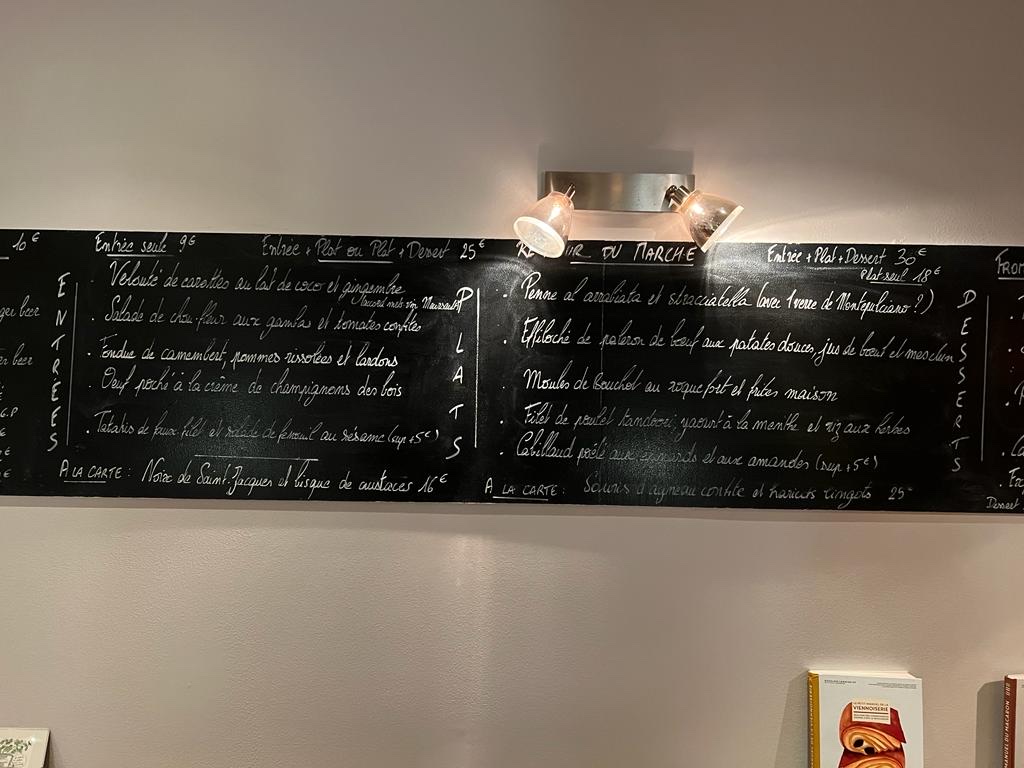 10€
Entrée seule 9€
Entrée + Plat ou Plat + Dessert 25€
RE DU MARCHE
Entrée + Plat + Dessert 30€
Plat seul 18€
FROM
ENTREES
Velouté de carottes au lait de coco et gingembre
. Salade de chou-fleur aux gambas et tomates confites
. Fondue de camembert, pommes rissolées et lardons
. Oeuf poché à la crème de champignons des bois
. Tatakis de faux-filet et salade de fenouil au sésame (sup +5€)
A LA CARTE : Noix de Saint-Jacques et bisque de crustacés 16€
PLATS
. Penne al arrabiata et stracciatella (avec 1 verre de Montepulciano ?)
. Effiloché de paleron de boeuf aux patates douces, jus de boeuf et mesclun
. Moules de Bouchot au roquefort et frites maison
. Filet de poulet tandoori yaourt à la menthe et riz aux herbes
. Cabillaud poêlé aux épinards et aux amandes (sup +5€)
A LA CARTE : Souris d'agneau confite et haricots lingots 25€
DESSERTS
ger beer
beer
G.P
Dessert
LE PETIT MANUEL DE LA
VIENNOISERIE
MANUEL DU MACARON